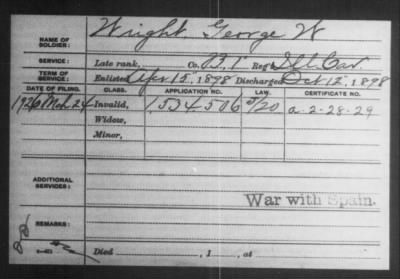 Wright, George W
NAME OF SOLDIER:
SERVICE: Late rank, Co. B. 1 Reg't Ill. Cav.
TERM OF SERVICE: Enlisted Apr 15, 1898 Discharged Oct 12, 1898
DATE OF FILING. CLASS. APPLICATION NO. LAW. CERTIFICATE NO.
1926 Mch 24 Invalid, 1534506 a-2-28-29
Widow,
Minor,
ADDITIONAL SERVICES:
War with Spain.
REMARKS:
Died , 1 , at